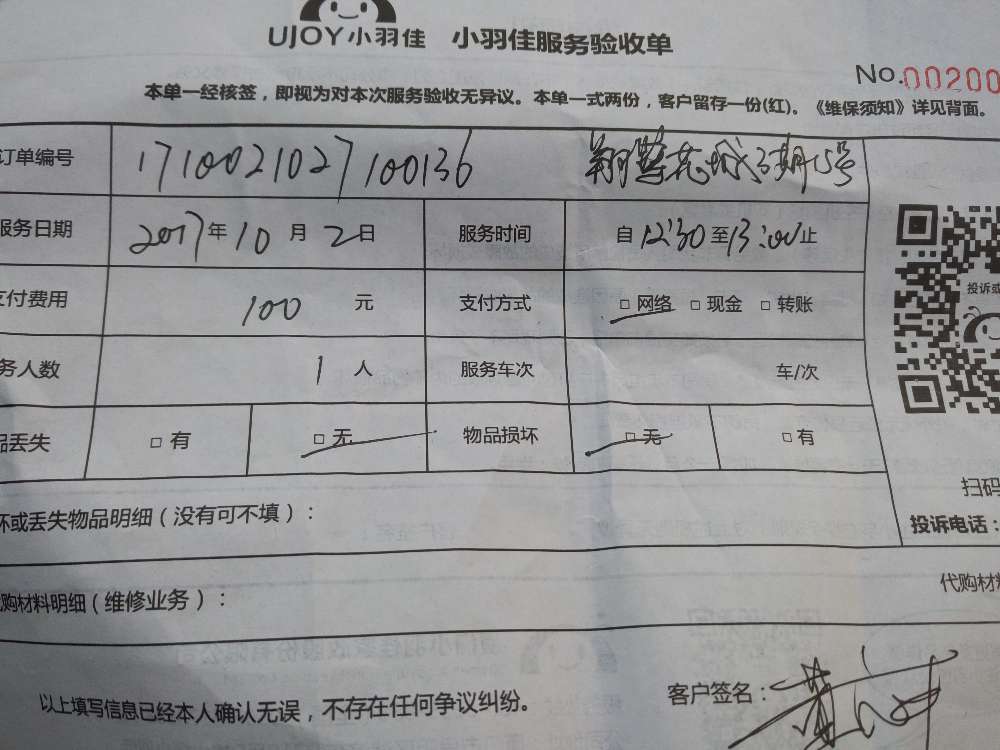 UJOY小羽佳 小羽佳服务验收单
No.00200
本单一经核签，即视为对本次服务验收无异议。本单一式两份，客户留存一份(红)。《维保须知》详见背面。
订单编号 1710021027100136 翔鹭花城3期15号
服务日期 2017年10月2日 服务时间 自12:30至13:00止
支付费用 100 元 支付方式 □网络 □现金 □转账
务人数 1人 服务车次 车/次
品丢失 □有 □无 物品损坏 □无 □有
投诉或
扫码
坏或丢失物品明细（没有可不填）：
投诉电话：
代购材料
购材料明细（维修业务）：
以上填写信息已经本人确认无误，不存在任何争议纠纷。
客户签名：